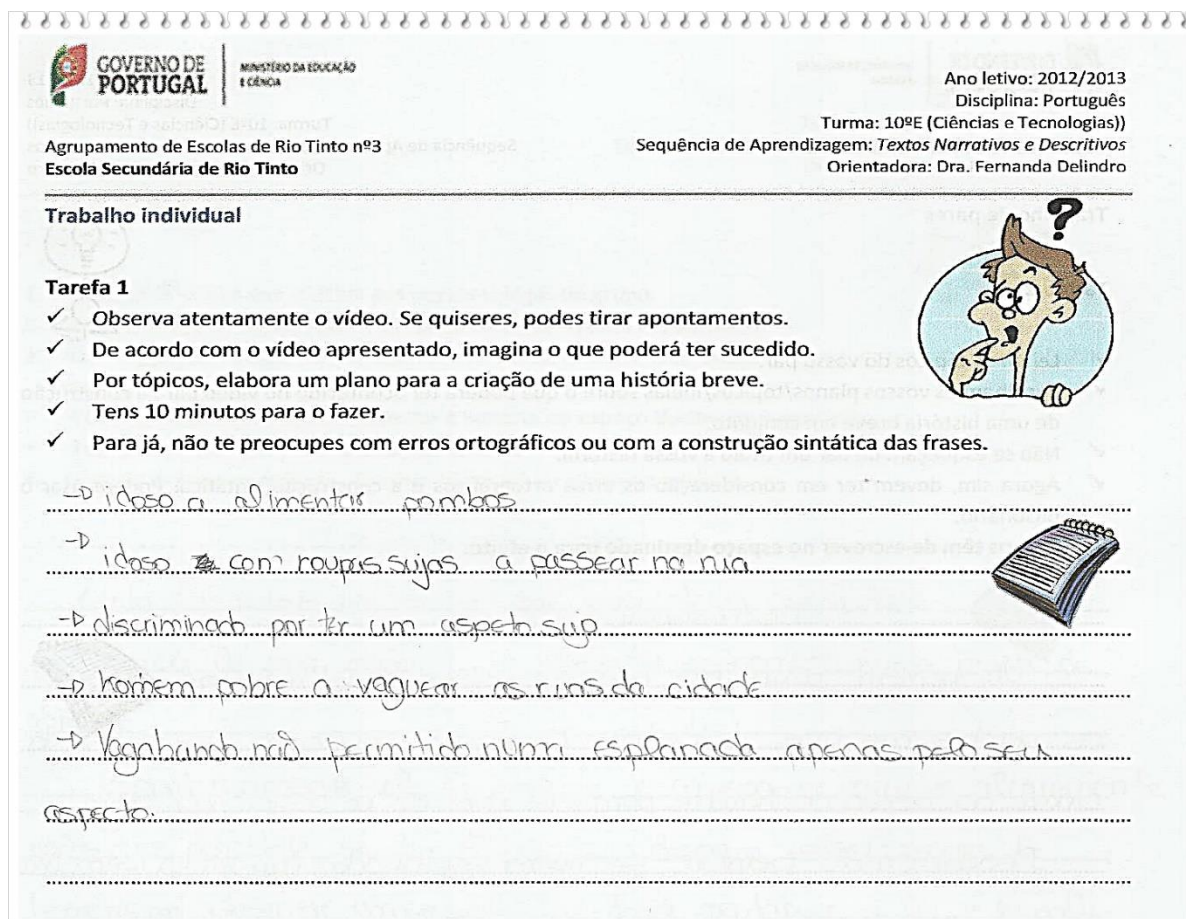 GOVERNO DE
PORTUGAL
MINISTÉRIO DA EDUCAÇÃO
E CIÊNCIA
Ano letivo: 2012/2013
Disciplina: Português
Turma: 10ºE (Ciências e Tecnologias))
Agrupamento de Escolas de Rio Tinto nº3
Sequência de Aprendizagem: Textos Narrativos e Descritivos
Escola Secundária de Rio Tinto
Orientadora: Dra. Fernanda Delindro
Trabalho individual
?
Tarefa 1
✓ Observa atentamente o vídeo. Se quiseres, podes tirar apontamentos.
✓ De acordo com o vídeo apresentado, imagina o que poderá ter sucedido.
✓ Por tópicos, elabora um plano para a criação de uma história breve.
✓ Tens 10 minutos para o fazer.
✓ Para já, não te preocupes com erros ortográficos ou com a construção sintática das frases.
→ idoso a alimentar pombos
→ idoso com roupas sujas a passear na rua
→ discriminado por ter um aspeto sujo
→ homem pobre a vaguear as ruas da cidade
→ Vagabundo não permitido numa esplanada apenas pelo seu
aspecto.